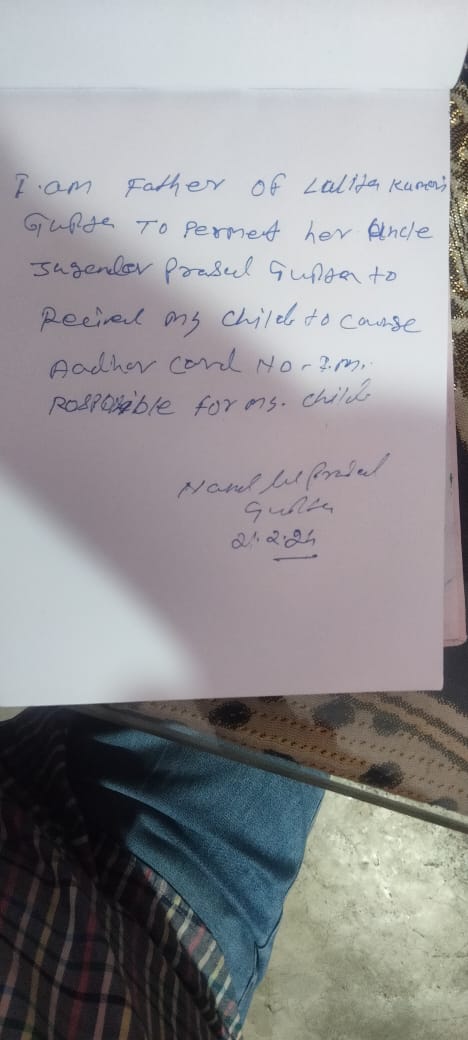 I. am Father OF Lalita Kumari
Gupta To Permet her Uncle
Jugendar Prasad Gupta to
Recived my child to cause
Aadhar Card No - I.m.
Responsible for my. child
Nand lal Prasad
Gupta
21.2.24